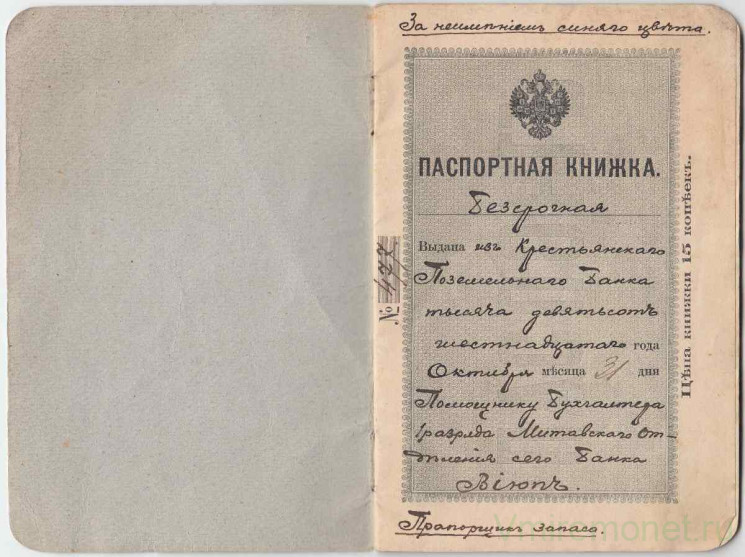 За неимѣніемъ синяго цвѣта.
ПАСПОРТНАЯ КНИЖКА.
Безсрочная
Выдана изъ Крестьянскаго
Поземельнаго Банка
тысяча девятьсотъ
шестнадцатаго года
Октября мѣсяца 31 дня
Помощнику Бухгалтера
1 разряда Митавскаго От-
дѣленія сего Банка
Прапорщикъ запаса.
№ 477
Цѣна книжки 15 копѣекъ.
Vmiremonet.ru